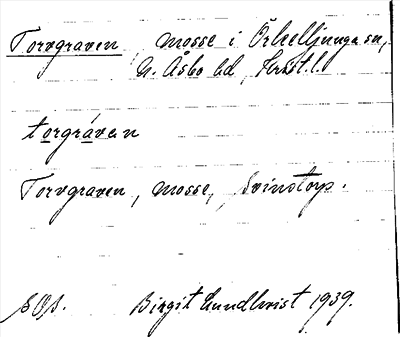 Torvgraven, mosse i Örkelljunga sn,
N. Åsbo hd, Krist. l.
torgráven
Torvgraven, mosse, Svinstorp.
SOS. Birgit Lundkvist 1939.